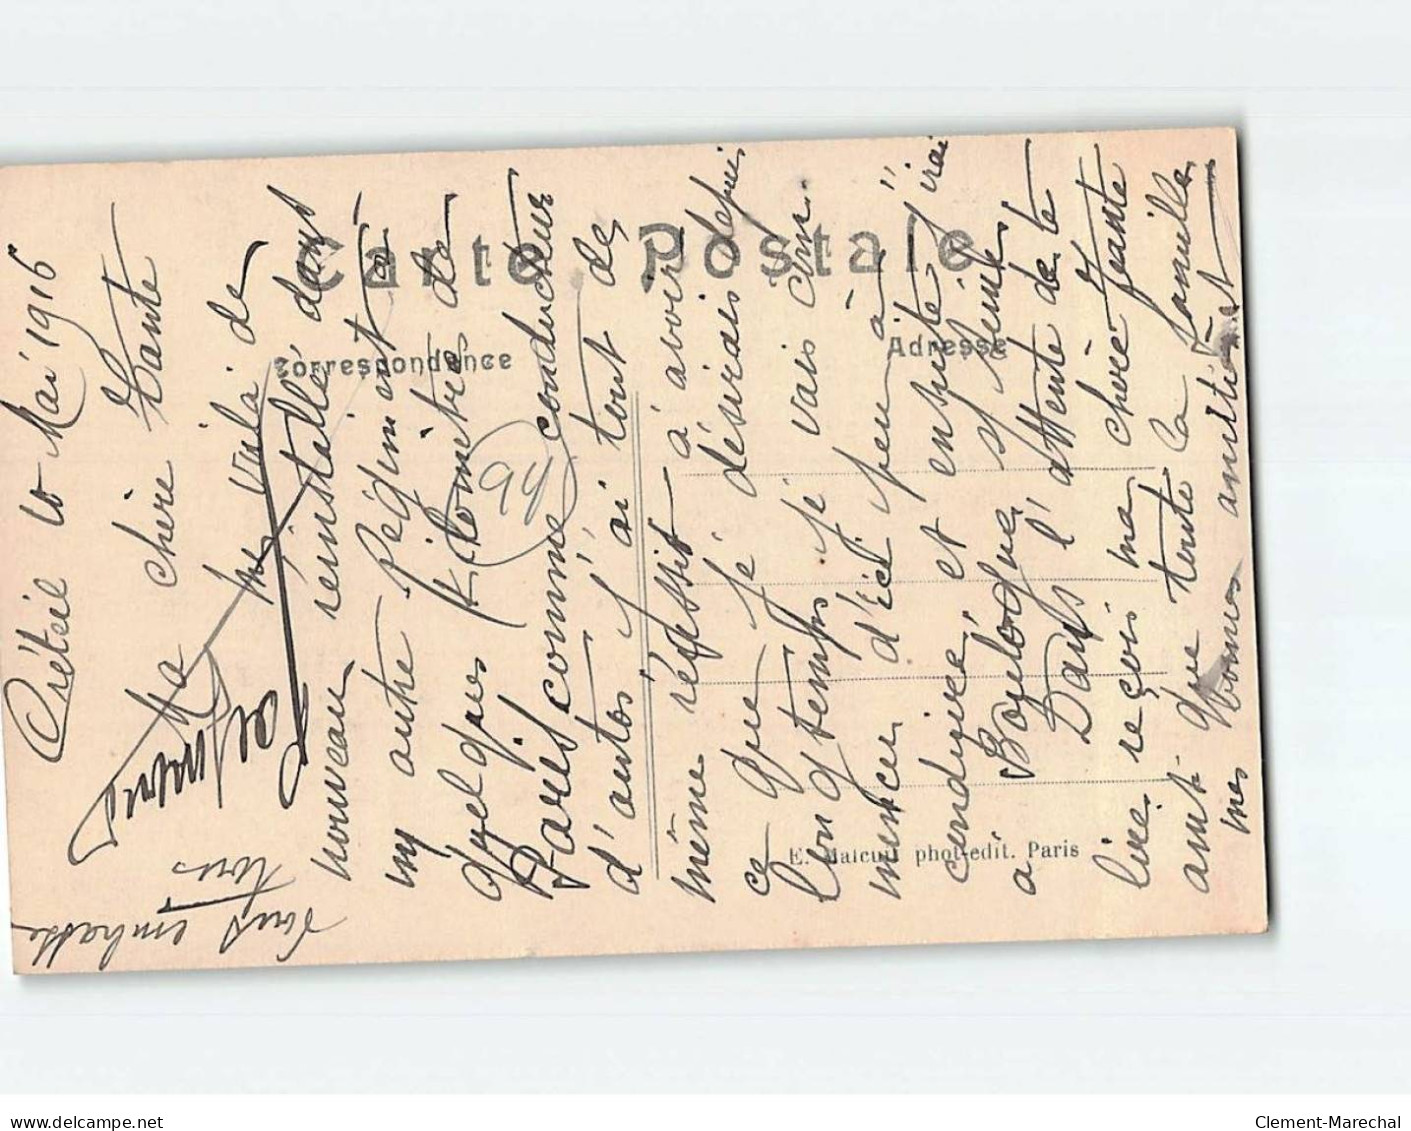 Carte Postale
Correspondance
Adresse
E. Malcuit phot-edit. Paris
94
Créteil 10 Mai 1916
Ma chère Tante
me voila de
nouveau réinstallé dans
un autre Régiment à
quelques Kilomètres de
Paris comme conducteur
d'autos j'ai tout de
même réussit à avoir
ce que je désirais depuis
longtemps je vais com-
mencer d'ici peu à
conduire et ensuite j'irai
à Boulogne s/ Seine
Dans l'attente de te
lire reçois ma chère Tante
ainsi que toute la famille
mes bonnes amitiés
vous embrasse
tous